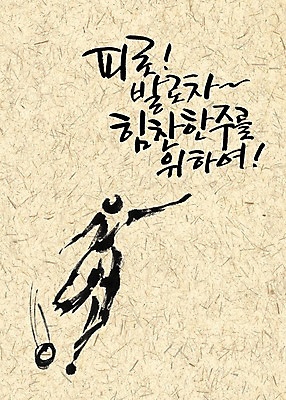 피로!
발로차~
힘찬한주를
위하여!